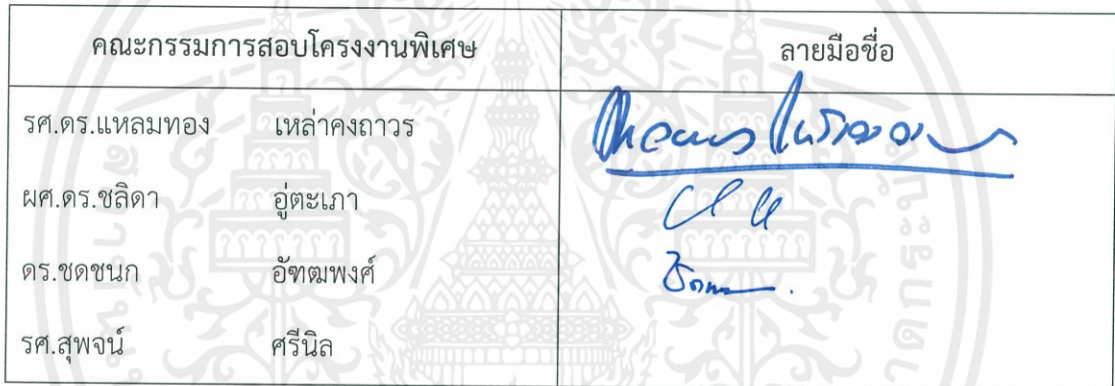 คณะกรรมการสอบโครงงานพิเศษ ลายมือชื่อ
รศ.ดร.แหลมทอง เหล่าคงถาวร
ผศ.ดร.ชลิดา อู่ตะเภา
ดร.ชดชนก อัฑฒพงศ์
รศ.สุพจน์ ศรีนิล